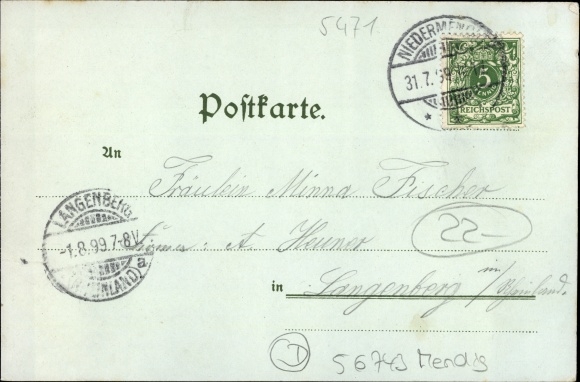 5471
NIEDERMENDIG
31.7.99
5
REICHSPOST
Postkarte.
An
Fräulein Minna Fischer
LANGENBERG
-1.8.99.7-8V.
(RHEINLAND) a
Firma: A. Heuner
22-
in Langenberg im/Rheinland.
D
56743 Mendig